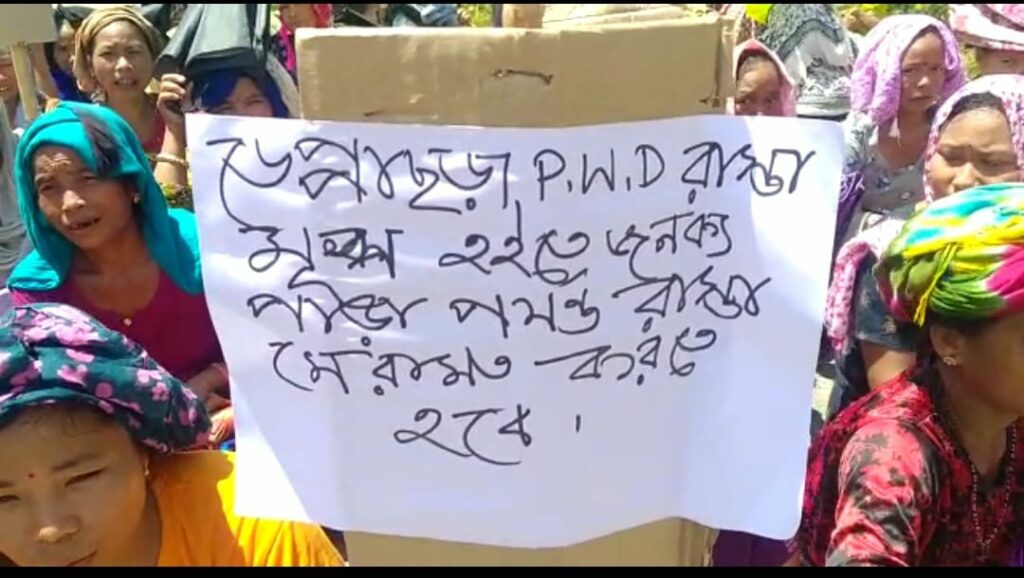 ডেপাছড়া P.W.D রাস্তা
হইতে জনকয়
পাড়া পর্যন্ত রাস্তা
মেরামত করতে
হবে।